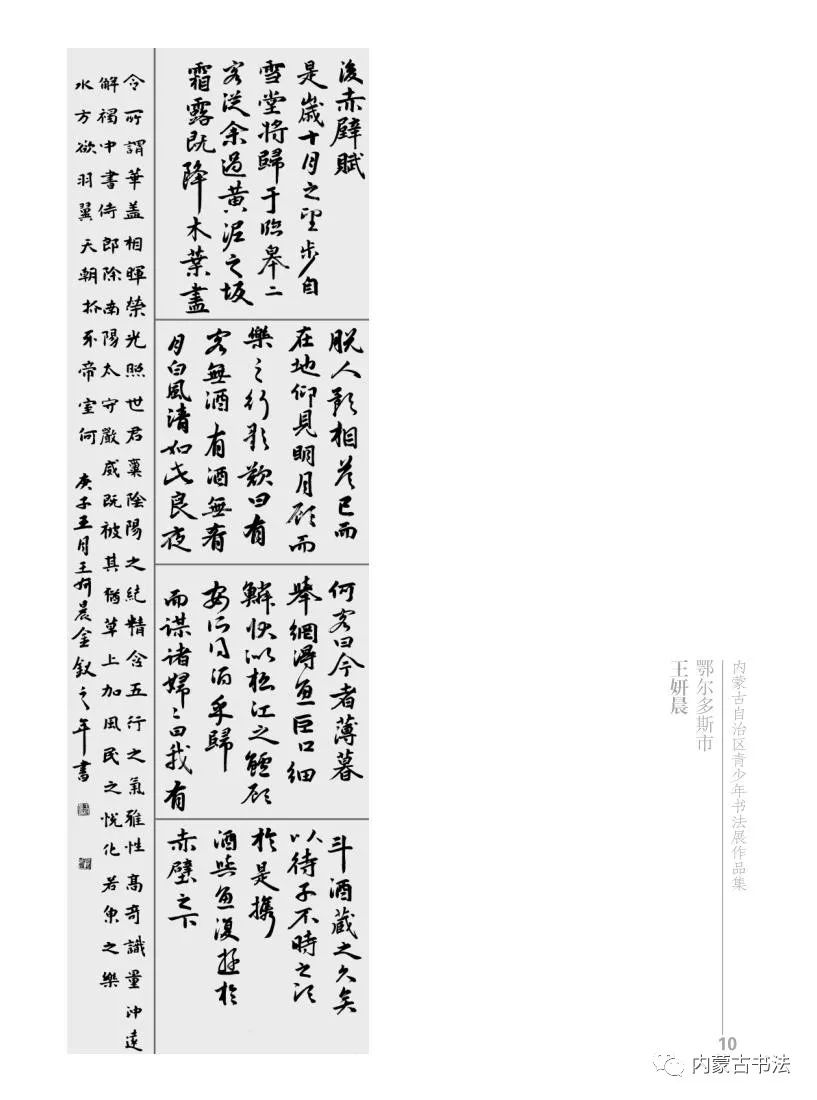 後赤壁賦
是歲十月之望步自
雪堂將歸于臨皋二
客從余過黃泥之坂
霜露既降木葉盡
脫人影相答已而
在地仰見明月顧而
樂之行歌歎曰有
客無酒有酒無肴
月白風清如此良夜
何客曰今者薄暮
舉網得魚巨口細
鱗狀似松江之鱸顧
安所得酒乎歸
而謀諸婦〻曰我有
斗酒藏之久矣
以待子不時之須
於是攜
酒與魚復遊於
赤壁之下
令所謂華蓋相暉榮光照世君稟陰陽之純精含五行之氣雅性高奇識量沖遠
解褐中書侍郎除南陽太守嚴威既被其猶草上加風民之悅化若魚之樂
水方欲羽翼天朝抓牙帝室何
庚子五月王妍晨金釵之年書
内蒙古自治区青少年书法展作品集
鄂尔多斯市
王妍晨
10
内蒙古书法